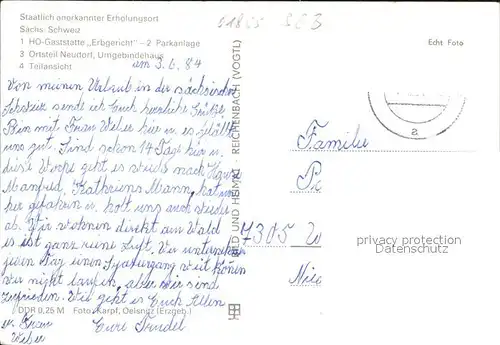 Staatlich anerkannter Erholungsort
Sächs. Schweiz
1 HO-Gaststätte „Erbgericht" – 2 Parkanlage
3 Ortsteil Neudorf, Umgebindehaus
4 Teilansicht
Echt Foto
am 3.6.84
Von meinen Urlaub in der sächsischen
Schweiz sende ich Euch herzliche Grüße.
Bin mit Frau Weber hier u. es gefällt
uns gut. Sind schon 14 Tage hier u.
diese Woche geht es wieder nach
Manfred, Kathruns Mann, hat uns
her gefahren u. holt uns auch wieder
ab. Wir wohnen direkt am Wald
es ist ganz reine Luft. Wir unternehmen
jeden Tag einen Spaziergang weit können
wir nicht laufen, aber wir sind
zufrieden. Wie geht es Euch Allen
Eure Trudel
u. Frau
Weber
DDR 0,25 M Foto: Karpf, Oelsnitz (Erzgeb.)
BILD UND HEIMAT REICHENBACH (VOGTL)
Familie
7305 W
privacy protection
Datenschutz